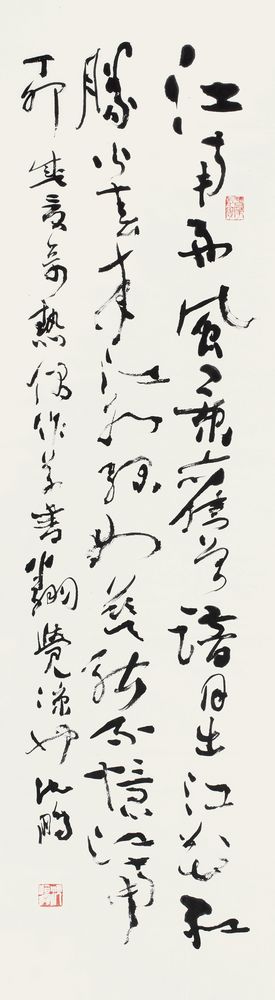 江南好風景舊曾諳日出江花紅
勝火春來江水綠如藍能不憶江南
丁卯盛夏奇熱偶作草書翻覺涼也沈鵬